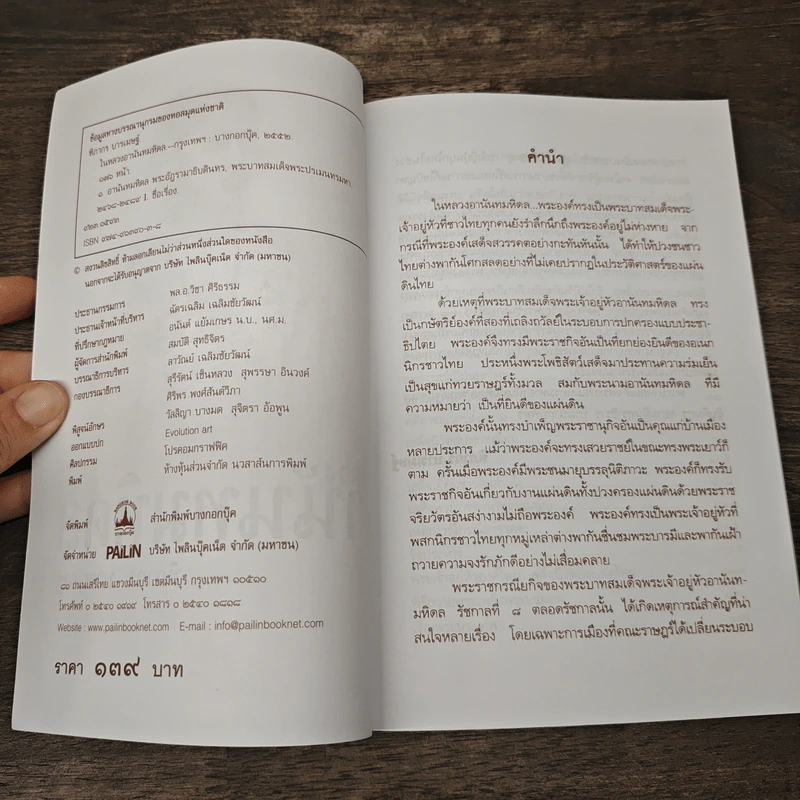 ข้อมูลทางบรรณานุกรมของหอสมุดแห่งชาติ
ศิภากร บารเมษฐ์
ในหลวงอานันทมหิดล --กรุงเทพฯ : บางกอกบุ๊ค, ๒๕๕๒.
๑๗๖ หน้า.
๑. อานันทมหิดล พระอัฎรามาธิบดินทร, พระบาทสมเด็จพระปรเมนทรมหา,
๒๔๖๘-๒๔๘๙ I. ชื่อเรื่อง.
๙๒๓.๑๕๙๓
ISBN
© สงวนลิขสิทธิ์ ห้ามลอกเลียนไม่ว่าส่วนหนึ่งส่วนใดของหนังสือ
นอกจากจะได้รับอนุญาตจาก บริษัท ไพลินบุ๊คเน็ต จำกัด (มหาชน)
ประธานกรรมการ พล.อ.วิชา ศิริธรรม
ประธานเจ้าหน้าที่บริหาร ฉัตรเฉลิม เฉลิมชัยวัฒน์
ที่ปรึกษากฎหมาย อนันต์ แย้มเกษร น.บ., นศ.ม.
ผู้จัดการสำนักพิมพ์ สมบัติ สุทธิจิตร
บรรณาธิการบริหาร ลาวัณย์ เฉลิมชัยวัฒน์
กองบรรณาธิการ สุรีรัตน์ เซ็นหลวง สุพรรษา อินวงค์
ศิริพร พงศ์สันต์วิภา
พิสูจน์อักษร วัลลิญา บางมด สุจิตรา อ้อพูน
ออกแบบปก Evolution art
ศิลปกรรม โปรคอมกราฟฟิค
พิมพ์ ห้างหุ้นส่วนจำกัด นวสาส์นการพิมพ์
จัดพิมพ์ สำนักพิมพ์บางกอกบุ๊ค
จัดจำหน่าย PAiLiN บริษัท ไพลินบุ๊คเน็ต จำกัด (มหาชน)
๘๐ ถนนเสรีไทย แขวงมีนบุรี เขตมีนบุรี กรุงเทพฯ ๑๐๕๑๐
โทรศัพท์ ๐ ๒๕๔๐ ๑๙๑๙ โทรสาร ๐ ๒๕๔๐ ๑๘๑๘
Website : www.pailinbooknet.com E-mail : info@pailinbooknet.com
ราคา ๑๓๙ บาท
คำนำ
ในหลวงอานันทมหิดล...พระองค์ทรงเป็นพระบาทสมเด็จพระ-
เจ้าอยู่หัวที่ชาวไทยทุกคนยังรำลึกนึกถึงพระองค์อยู่ไม่ห่างหาย จาก
กรณีที่พระองค์เสด็จสวรรคตอย่างกะทันหันนั้น ได้ทำให้ปวงชนชาว
ไทยต่างพากันโศกสลดอย่างที่ไม่เคยปรากฏในประวัติศาสตร์ของแผ่น
ดินไทย
ด้วยเหตุที่พระบาทสมเด็จพระเจ้าอยู่หัวอานันทมหิดล ทรง
เป็นกษัตริย์องค์ที่สองที่เถลิงถวัลย์ในระบอบการปกครองแบบประชา-
ธิปไตย พระองค์จึงทรงมีพระราชกิจอันเป็นที่ยกย่องยินดีของอเนก
นิกรชาวไทย ประหนึ่งพระโพธิสัตว์เสด็จมาประทานความร่มเย็น
เป็นสุขแก่ทวยราษฎร์ทั้งมวล สมกับพระนามอานันทมหิดล ที่มี
ความหมายว่า เป็นที่ยินดีของแผ่นดิน
พระองค์นั้นทรงบำเพ็ญพระราชานุกิจอันเป็นคุณแก่บ้านเมือง
หลายประการ แม้ว่าพระองค์จะทรงเสวยราชย์ในขณะทรงพระเยาว์ก็
ตาม ครั้นเมื่อพระองค์มีพระชนมายุบรรลุนิติภาวะ พระองค์ก็ทรงรับ
พระราชกิจอันเกี่ยวกับงานแผ่นดินทั้งปวงครองแผ่นดินด้วยพระราช
จริยวัตรอันสง่างามไม่ถือพระองค์ พระองค์ทรงเป็นพระเจ้าอยู่หัวที่
พสกนิกรชาวไทยทุกหมู่เหล่าต่างพากันชื่นชมพระบารมีและพากันเฝ้า
ถวายความจงรักภักดีอย่างไม่เสื่อมคลาย
พระราชกรณียกิจของพระบาทสมเด็จพระเจ้าอยู่หัวอานันท-
มหิดล รัชกาลที่ ๘ ตลอดรัชกาลนั้น ได้เกิดเหตุการณ์สำคัญที่น่า
สนใจหลายเรื่อง โดยเฉพาะการเมืองที่คณะราษฎร์ได้เปลี่ยนระบอบ